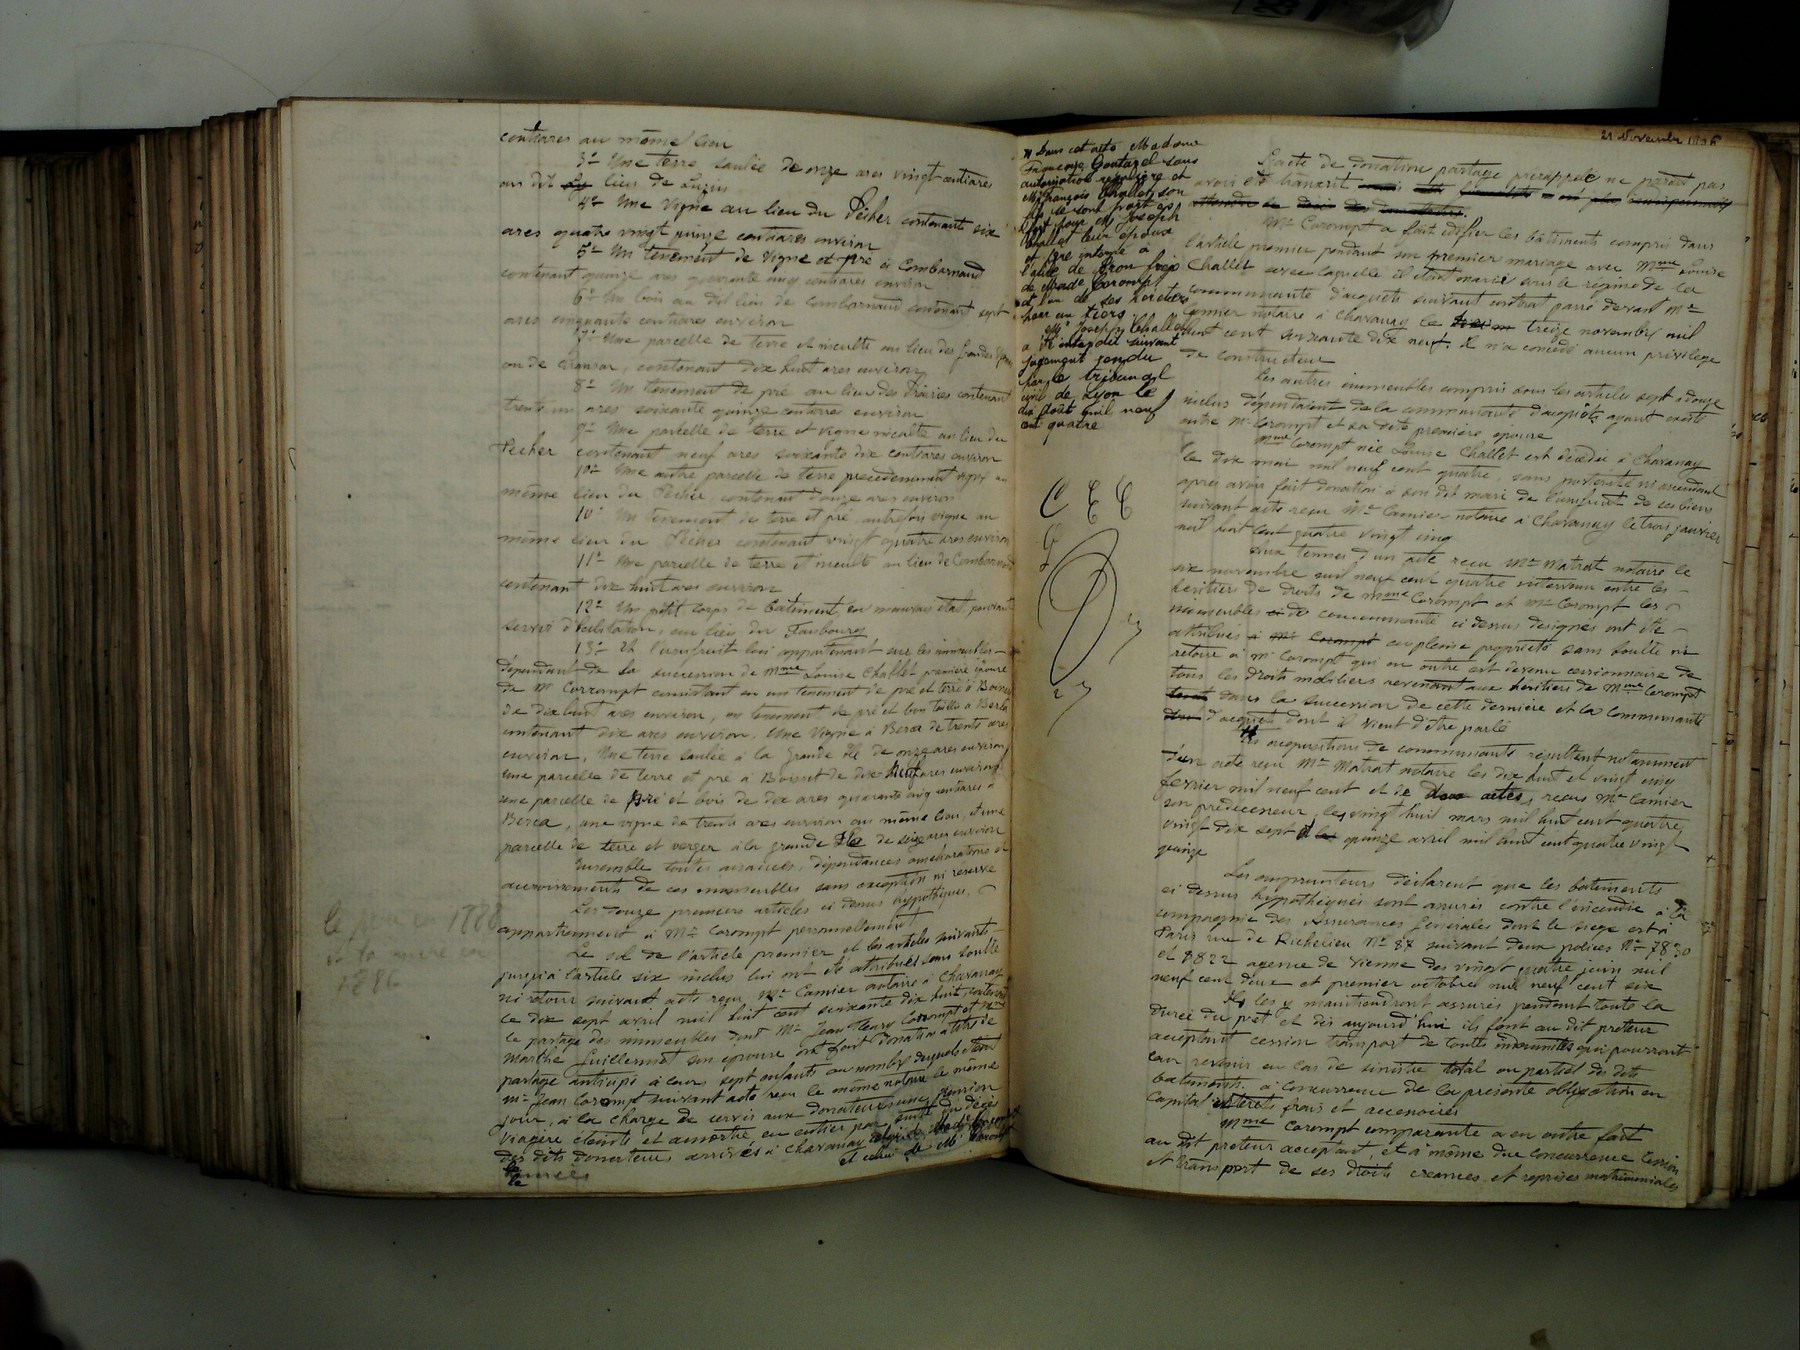 centiares au même lieu
3º Une terre saulée de onze ares vingt centiares
au dit lieu de Luzin
4º Une vigne au lieu du Pêcher contenant six
ares quatre vingt quinze centiares environ
5º Un tènement de vigne et pré à Combarnaud
contenant quinze ares quarante cinq centiares environ
6º Un bois au dit lieu de Combarnaud contenant sept
ares cinquante centiares environ
7º Une parcelle de terre et inculte au lieu des grandes
ou de contenant dix huit ares environ
8º Un tènement de pré au lieu des Prairies contenant
trente un ares soixante quinze centiares environ
9º Une parcelle de terre et vigne inculte au lieu du
Pêcher contenant neuf ares soixante dix centiares environ
10º Une autre parcelle de terre précédemment vigne au
même lieu du Pêcher contenant douze ares environ
10º Un tènement de terre et pré autrefois vigne au
même lieu du Pêcher contenant vingt quatre ares environ
11º Une parcelle de terre et inculte au lieu de Combarnaud
contenant dix huit ares environ
12º Un petit corps de bâtiment en mauvais état pouvant
servir d'habitation, au lieu du Faubourg
13º Et l'usufruit lui appartenant sur les immeubles
dépendant de la succession de Mme Louise Challet première épouse
de Mr Corrompt consistant en un tènement de pré et terre à Boisset
de dix huit ares environ, un tènement de pré et bois taillis à Berea
contenant dix ares environ, Une vigne à Berea de trente ares
environ, Une terre saulée à la Grande Ile de onze ares environ
une parcelle de terre et pré à Boisset de dix neuf ares environ
une parcelle de pré et bois de dix ares quarante cinq centiares à
Berea, une vigne de trente ares environ au même lieu, et une
parcelle de terre et verger à la grande Ile de seize ares environ
Ensemble toutes aisances, dépendances améliorations et
accroissements de ces immeubles sans exception ni réserve
Les douze premiers articles ci dessus hypothéqués,
appartiennent à Mr Corompt personnellement
Le sol de l'article premier et les articles suivants
jusqu'à l'article six inclus lui ont été attribués sans soulte
ni retour suivant acte reçu Me Camier notaire à Chavanay
le dix sept avril mil huit cent soixante dix huit, contenant
le partage des immeubles dont Mr Jean Fleury Corompt et Mme
Marthe Guillermet son épouse ont fait donation à titre de
partage anticipé à leurs sept enfants au nombre desquels était
Mr Jean Corompt suivant acte reçu le même notaire le même
jour, à la charge de servir aux donateurs une pension
viagère éteinte et amortie en entier par suite du décès
des dits donateurs arrivés à Chavanay celui de Made Corompt
le et celui de Mr Corompt
le
le 1888
1886
21 Novembre 1906
Dans cet acte Madame
Françoise Goutarel sans
autorisation régulière et
Mr François Challet son
fils se sont portés
fort pour Mr Joseph
Challet leur époux
et père interné à
l'asile de Bron frère
de Made Corompt
et l'un de ses héritiers
pour un tiers
Mr Joseph Challet
a été interdit suivant
jugement rendu
par le tribunal
civil de Lyon le
dix août mil neuf
cent quatre
C E C
L'acte de donation partage prérappelé ne paraît pas
avoir été transcrit
Mr Corompt a fait édifier les bâtiments compris dans
l'article premier pendant son premier mariage avec Mme Louise
Challet avec laquelle il était marié sous le régime de la
communauté d'acquêts suivant contrat passé devant Me
Camier notaire à Chavanay le treize novembre mil
huit cent soixante dix neuf. Il n'a concédé aucun privilège
de constructeur
Les autres immeubles compris sous les articles sept à douze
inclus dépendaient de la communauté d'acquêts ayant existé
entre Mr Corompt et sa dite première épouse
Mme Corompt née Louise Challet est décédée à Chavanay
le dix mai mil neuf cent quatre, sans postérité ni ascendant
après avoir fait donation à son dit mari de l'usufruit de ses biens
suivant acte reçu Me Camier notaire à Chavanay le trois janvier
mil huit cent quatre vingt cinq
Aux termes d'un acte reçu Me Matrat notaire le
six novembre mil neuf cent quatre intervenu entre les
héritiers de droits de Mme Corompt et Mr Corompt les
immeubles de communauté ci dessus désignés ont été
attribués à Mr Corompt en pleine propriété sans soulte ni
retour à Mr Corompt qui en outre est devenu cessionnaire de
tous les droits mobiliers revenant aux héritiers de Mme Corompt
dans la succession de cette dernière et la communauté
d'acquêts dont il vient d'être parlé
Les acquisitions de communauté résultent notamment
d'un acte reçu Me Matrat notaire les dix huit et vingt cinq
février mil neuf cent et de deux actes reçus Me Camier
son prédécesseur, les vingt huit mars mil huit cent quatre
vingt dix sept et quinze avril mil huit cent quatre vingt
quinze
Les emprunteurs déclarent que les bâtiments
ci dessus hypothéqués sont assurés contre l'incendie à la
compagnie des Assurances Générales dont le siège est à
Paris rue de Richelieu Nº 87 suivant deux polices Nº 7830
et 9822 agence de Vienne des vingt quatre juin mil
neuf cent deux et premier octobre mil neuf cent six
Ils les y maintiendront assurés pendant toute la
durée du prêt et dès aujourd'hui ils font au dit prêteur
acceptant cession transport de toutes indemnités qui pourront
leur revenir en cas de sinistre total ou partiel des dits
bâtiments à concurrence de la présente obligation en
capital intérêts frais et accessoires
Mme Corompt comparante a en outre fait
au dit prêteur acceptant, et à même due concurrence cession
et transport de ses droits créances et reprises matrimoniales